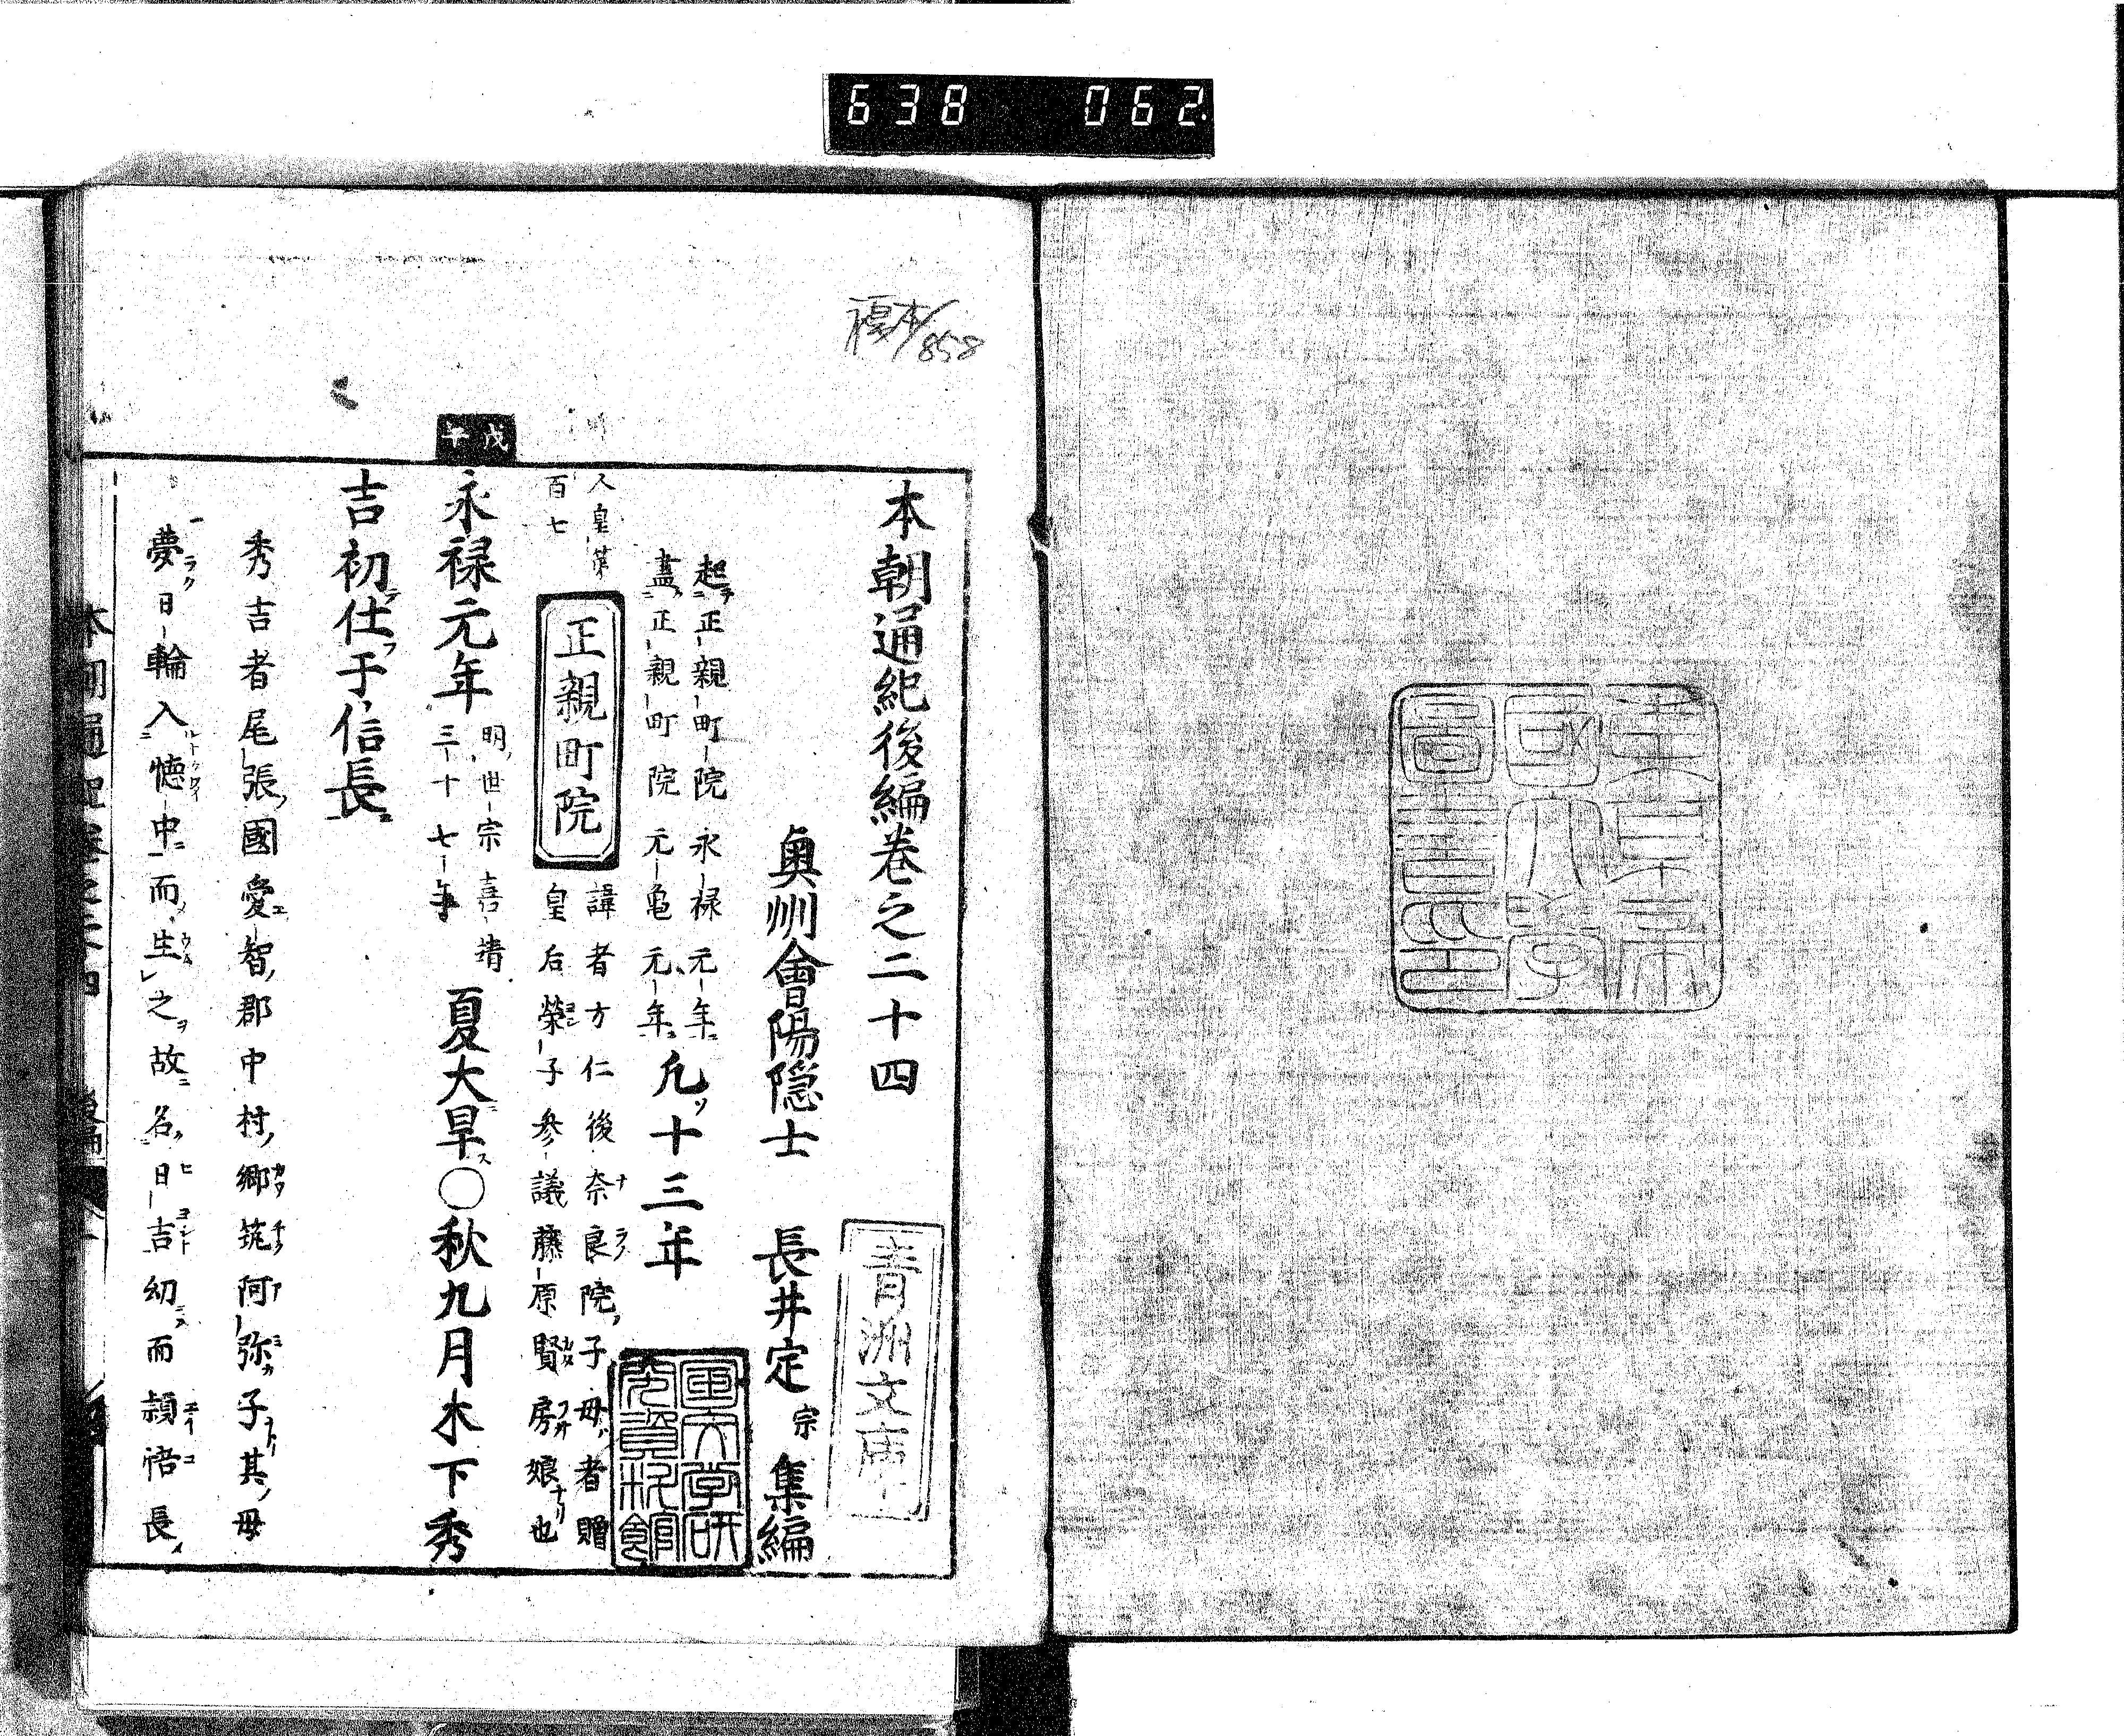 638 062
複本/858
東京帝
國大學
圖書印
本朝通紀後編巻之二十四
青洲文庫
奥州會陽隠士 長井定宗 集編
起正親町院永禄元年
盡正親町院元亀元年
凡十三年
人皇第
百七
正親町院
諱者方仁後奈良院子母者贈
皇后榮子参議藤原賢房娘也
戊午
永禄元年
明世宗嘉靖
三十七年
夏大旱○秋九月木下秀
吉初仕于信長
秀吉者尾張國愛智郡中村郷筑阿弥子其母
夢日輪入懐中而生之故名日吉幼而頴悟長
本朝通紀巻之二十四 後編